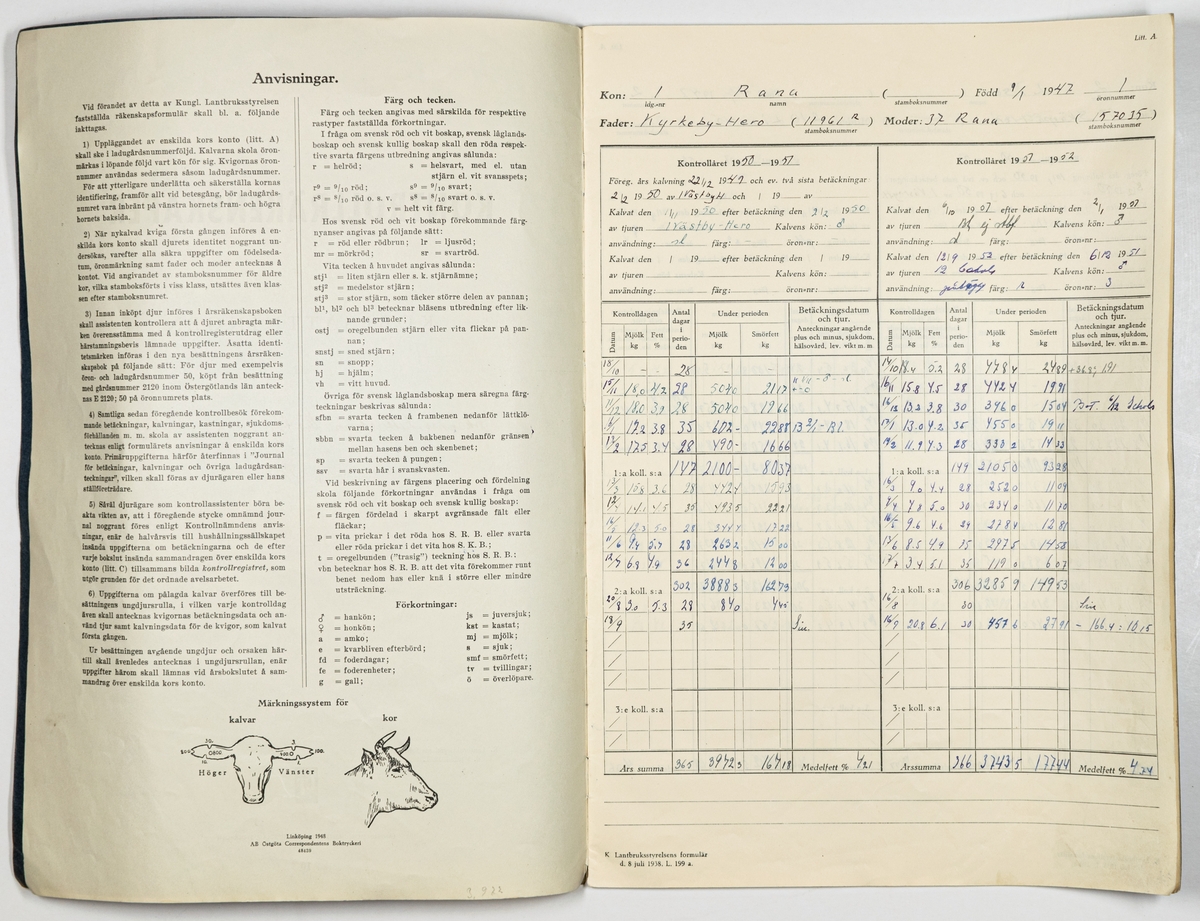 Anvisningar.
Vid förandet av detta av Kungl. Lantbruksstyrelsen
fastställda räkenskapsformulär skall bl. a. följande
iakttagas.
1) Uppläggandet av enskilda kors konto (litt. A)
skall ske i ladugårdsnummerföljd. Kalvarna skola öron-
märkas i löpande följd vart kön för sig. Kvigornas öron-
nummer användas sedermera såsom ladugårdsnummer.
För att ytterligare underlätta och säkerställa kornas
identifiering, framför allt vid betesgång, bör ladugårds-
numret vara inbränt på vänstra hornets fram- och högra
hornets baksida.
2) När nykalvad kviga första gången införes å en-
skilda kors konto skall djurets identitet noggrant un-
dersökas, varefter alla säkra uppgifter om födelseda-
tum, öronmärkning samt fader och moder antecknas å
kontot. Vid angivandet av stamboksnummer för äldre
kor, vilka stamboksförts i viss klass, utsättes även klas-
sen efter stamboksnumret.
3) Innan inköpt djur införes i årsräkenskapsboken
skall assistenten kontrollera att å djuret anbragta mär-
ken överensstämma med å kontrollregisterutdrag eller
härstamningsbevis lämnade uppgifter. Åsatta identi-
tetsmärken införas i den nya besättningens årsräken-
skapsbok på följande sätt: För djur med exempelvis
öron- och ladugårdsnummer 50, köpt från besättning
med gårdsnummer 2120 inom Östergötlands län anteck-
nas E 2120; 50 på öronnumrets plats.
4) Samtliga sedan föregående kontrollbesök förekom-
mande betäckningar, kalvningar, kastningar, sjukdoms-
förhållanden m. m. skola av assistenten noggrant an-
tecknas enligt formulärets anvisning å enskilda kors
konto. Primäruppgifterna härför återfinnas i "Journal
för betäckningar, kalvningar och övriga ladugårdsan-
teckningar", vilken skall föras av djurägaren eller hans
ställföreträdare.
5) Såväl djurägare som kontrollassistenter böra be-
akta vikten av, att i föregående stycke omnämnd jour-
nal noggrant föres enligt Kontrollnämndens anvis-
ningar, enär de halvårsvis till hushållningssällskapet
insända uppgifterna om betäckningarna och de efter
varje bokslut insända sammandragen över enskilda kors
konto (litt. C) tillsammans bilda kontrollregistret, som
utgör grunden för det ordnade avelsarbetet.
6) Uppgifterna om pålagda kalvar överföres till be-
sättningens ungdjursrulla, i vilken varje kontrolldag
även skall antecknas kvigornas betäckningsdata och an-
vänd tjur samt kalvningsdata för de kvigor, som kalvat
första gången.
Ur besättningen avgående ungdjur och orsaken här-
till skall ävenledes antecknas i ungdjursrullan, enär
uppgifter härom skall lämnas vid årsbokslutet å sam-
mandrag över enskilda kors konto.
Färg och tecken.
Färg och tecken angivas med särskilda för respektive
rastyper fastställda förkortningar.
I fråga om svensk röd och vit boskap, svensk låglands-
boskap och svensk kullig boskap skall den röda respek-
tive svarta färgens utbredning angivas sålunda:
r = helröd; s = helsvart, med el. utan
stjärn el. vit svansspets;
r⁹ = 9/10 röd; s⁹ = 9/10 svart;
r⁸ = 8/10 röd o. s. v. s⁸ = 8/10 svart o. s. v.
v = helt vit färg.
Hos svensk röd och vit boskap förekommande färg-
nyanser angivas på följande sätt:
r = röd eller rödbrun; lr = ljusröd;
mr = mörkröd; sr = svartröd.
Vita tecken å huvudet angivas sålunda:
stj¹ = liten stjärn eller s. k. stjärnämne;
stj² = medelstor stjärn;
stj³ = stor stjärn, som täcker större delen av pannan;
bl¹, bl² och bl³ betecknar bläsens utbredning efter lik-
nande grunder;
ostj = oregelbunden stjärn eller vita flickar på pan-
nan;
snstj = sned stjärn;
sn = snopp;
hj = hjälm;
vh = vitt huvud.
Övriga för svensk låglandsboskap mera säregna färg-
teckningar beskrivas sålunda:
sfbn = svarta tecken å frambenen nedanför lättklö-
varna;
sbbn = svarta tecken å bakbenen nedanför gränsen
mellan hasens ben och skenbenet;
sp = svarta tecken å pungen;
ssv = svarta hår i svanskvasten.
Vid beskrivning av färgens placering och fördelning
skola följande förkortningar användas i fråga om
svensk röd och vit boskap och svensk kullig boskap:
f = färgen fördelad i skarpt avgränsade fält eller
fläckar;
p = vita prickar i det röda hos S. R. B. eller svarta
eller röda prickar i det vita hos S. K. B.;
t = oregelbunden ("trasig") teckning hos S. R. B.;
vbn betecknar hos S. R. B. att det vita förekommer runt
benet nedom has eller knä i större eller mindre
utsträckning.
Förkortningar:
♂ = hankön; js = juversjuk;
♀ = honkön; kst = kastat;
a = amko; mj = mjölk;
e = kvarbliven efterbörd; s = sjuk;
fd = foderdagar; smf = smörfett;
fe = foderenheter; tv = tvillingar;
g = gall; ö = överlöpare.
Märkningssystem för
kalvar kor
Höger Vänster
Linköping 1948
AB Östgöta Correspondentens Boktryckeri
Litt. A
Kon: 1 Rana ( ) Född 9/1 1947 1
ldg.-nr namn stamboksnummer öronnummer
Fader: Kyrkeby-Hero (11961 R) Moder: 37 Rana (157035)
stamboksnummer stamboksnummer
Kontrollåret 1950—1951
Föreg. års kalvning 22/12 1949 och ev. två sista betäckningar
2/2 1950 av och / 19 av
Kalvat den 1950 efter betäckning den 2/2 1950
av tjuren Västby-Hero Kalvens kön: ♂
användning: sl färg: öron-nr:
Kalvat den / 19 efter betäckning den / 19
av tjuren Kalvens kön:
användning: färg: öron-nr:
Kontrollåret 1951—1952
Kalvat den efter betäckning den
av tjuren Kalvens kön: ♂
användning: färg: öron-nr:
Kalvat den 12/9 1952 efter betäckning den 6/12 1951
av tjuren Kalvens kön: ♂
användning: färg: r öron-nr: 3
Kontrolldagen Antal dagar i perio-den Under perioden Betäckningsdatum och tjur.
Datum Mjölk kg Fett % Mjölk kg Smörfett kg Anteckningar angående plus och minus, sjukdom, hälsovård, lev. vikt m. m.
18/10 - - 28 - -
15/11 18,0 4,2 28 504 0 21 17
18,0 3,9 28 504 0 19 66
17,2 3.8 35 602 - 22 88
17,5 3.4 28 490 - 16 66
1:a koll. s:a 147 2100 - 80 37
15,8 3,6 28 442 4 15 93
14,1 4,5 35 493 5 22 21
12,3 5,0 28 344 4 17 22
9,4 5,7 28 263 2 15 00
12/7 6,8 4,9 36 244 8 12 00
2:a koll. s:a 302 3888 3 162 73
20/8 3,0 5,3 28 84 0 4 45
18/9 35 Sin.
3:e koll. s:a
Års summa 365 3972 3 167 18 Medelfett % 4,21
Kontrolldagen Antal dagar i perio-den Under perioden Betäckningsdatum och tjur.
Datum Mjölk kg Fett % Mjölk kg Smörfett kg Anteckningar angående plus och minus, sjukdom, hälsovård, lev. vikt m. m.
14/10 18.4 5.2 28 478 4 24 89
16/11 15.8 4.5 28 442 4 19 91
13.2 3.8 30 396 0 15 04
13.0 4.2 35 455 0 19 11
11.9 4.3 28 333 2 14 33
1:a koll. s:a 149 2105 0 93 28
16/3 9.0 4.4 28 252 0 11 09
7.8 5.0 30 234 0 11 70
9.6 4.6 29 278 4 12 81
8.5 4.9 35 297 5 14 58
3.4 5.1 35 119 0 6 07
2:a koll. s:a 306 3285 9 149 53
16/8 30 Sin
20.8 6.1 30 457 6 27 91 - 166.4 : 10,15
3:e koll. s:a
Årssumma 366 3743 5 177 44 Medelfett % 4,74
K Lantbruksstyrelsens formulär
d. 8 juli 1938. L. 199 a.